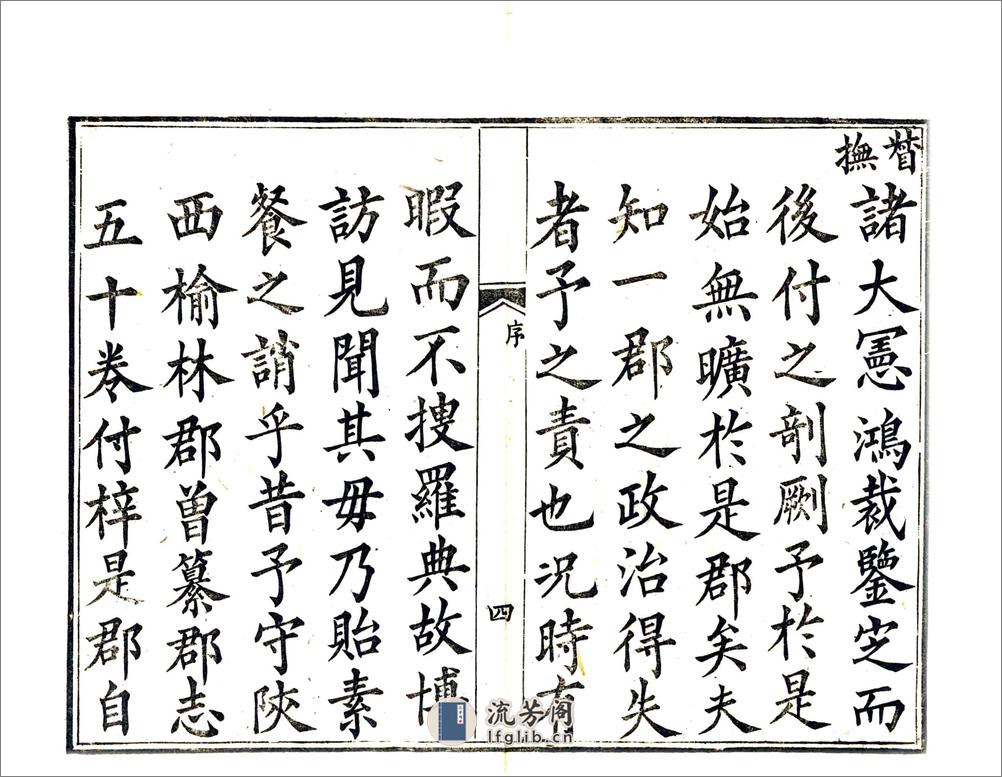 督撫
諸大憲鴻裁鑒㝎而
後付之剞劂予於是
始無曠於是郡矣夫
知一郡之政治得失
者予之責也況時有
序
四
暇而不搜羅典故博
訪見聞其毋乃貽素
餐之誚乎昔予守陝
西榆林郡曾纂郡志
五十卷付梓是郡自
流芳阁
lfglib.cn